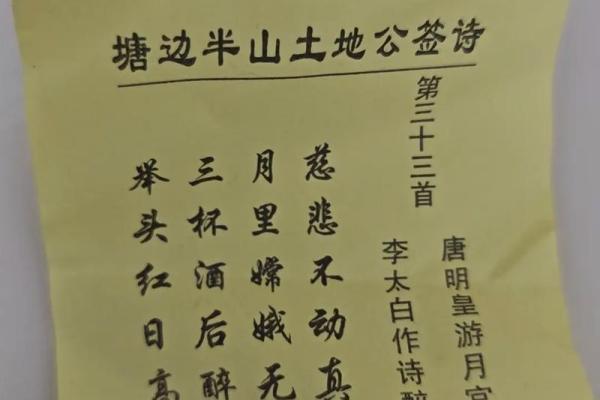 塘边半山土地公签诗
第三十三首
唐明皇游月宫
李太白作诗醉
慈悲不动真
月里嫦娥无
三杯酒后醉
举头红日高